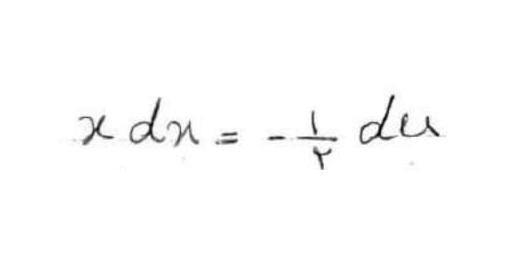 x dx = -\frac{۱}{۲} du